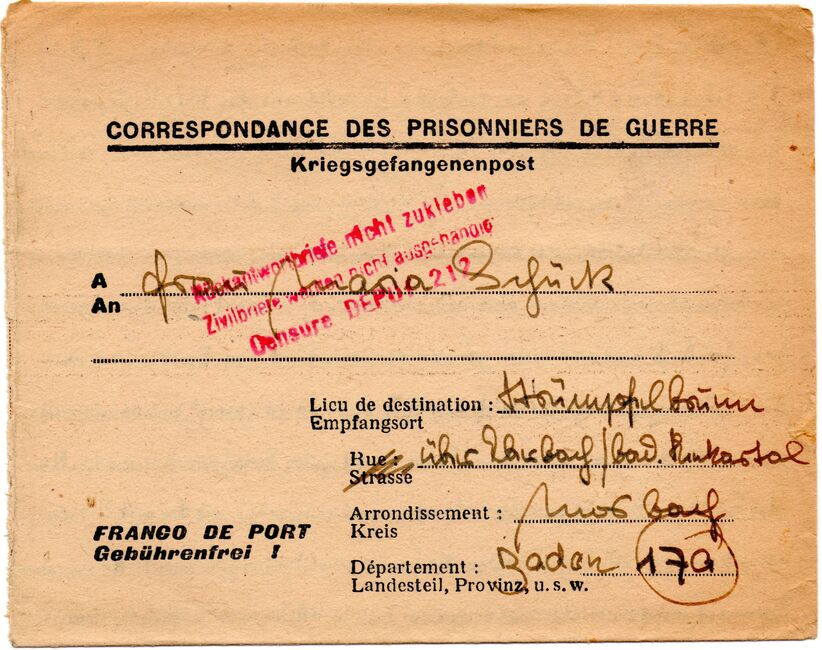 CORRESPONDANCE DES PRISONNIERS DE GUERRE
Kriegsgefangenenpost
Rückantwortbriefe nicht zukleben
Zivilbriefe werden nicht ausgehändigt
Censure DEPOT 212
A Frau Maria Schück
An
Lieu de destination : Strümpfelbrunn
Empfangsort
Rue : über Eberbach/bad. Neckartal
Strasse
Arrondissement : Mosbach
Kreis
FRANCO DE PORT
Gebührenfrei !
Département : Baden 17a
Landesteil, Provinz, u. s. w.